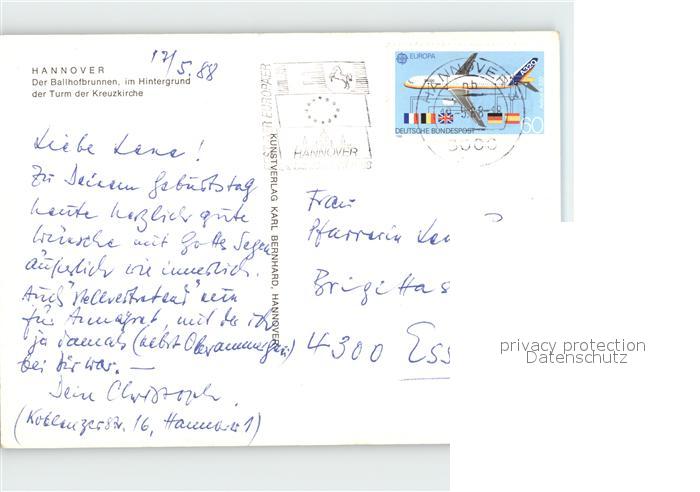 HANNOVER
Der Ballhofbrunnen, im Hintergrund
der Turm der Kreuzkirche
17/5.88
Liebe Lene!
Zu Deinem Geburtstag
heute herzlich gute
Wünsche mit Gottes Segen
äußerlich wie innerlich.
Auch "stellvertretend"
für Annegret, mit der ich
ja damals (nebst Oberammergau)
bei Dir war. —
Dein Christoph
(Koblenzerstr. 16, Hannover 1)
KUNSTVERLAG KARL BERNHARD, HANNOVER
HANNOVER
EUROPA
A320
HANNOVER
-5.88-
3000
DEUTSCHE BUNDESPOST
60
Frau
Pfarrerin
Brigittas
4300 Ess
privacy protection
Datenschutz